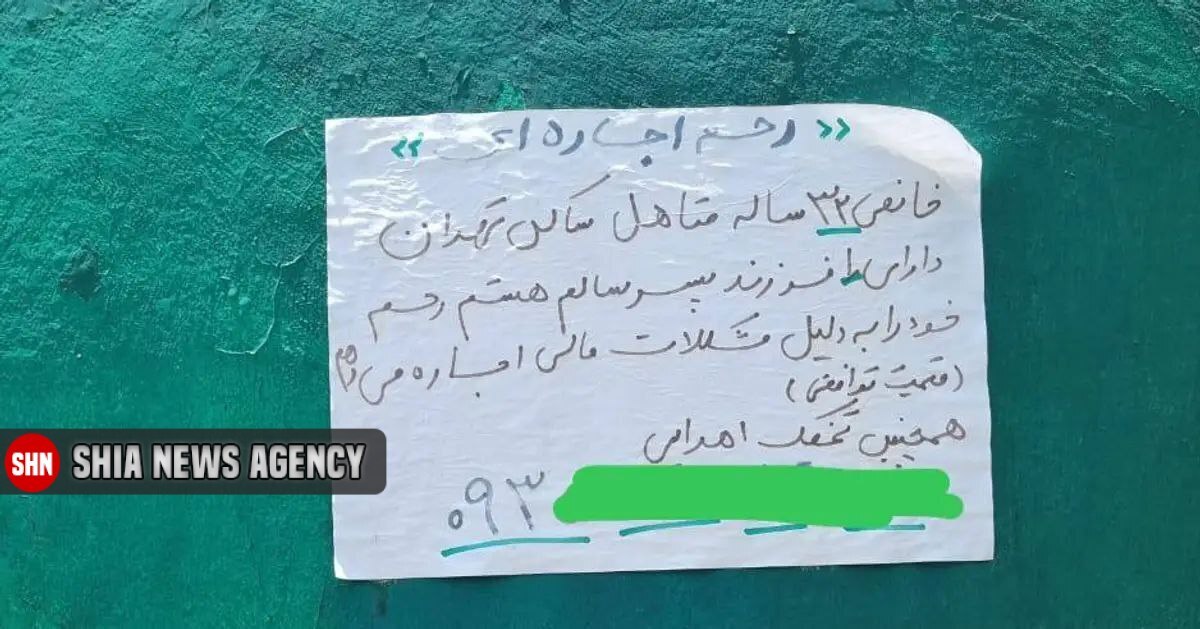 « رحم اجاره ای »
خانمی ۳۲ ساله متاهل ساکن تهران
دارای ۱ فرزند پسر سالم هستم رحم
خود را به دلیل مشکلات مالی اجاره می دهم
(قیمت توافقی)
همچنین تخمک اهدایی
۰۹۳
SHN SHIA NEWS AGENCY